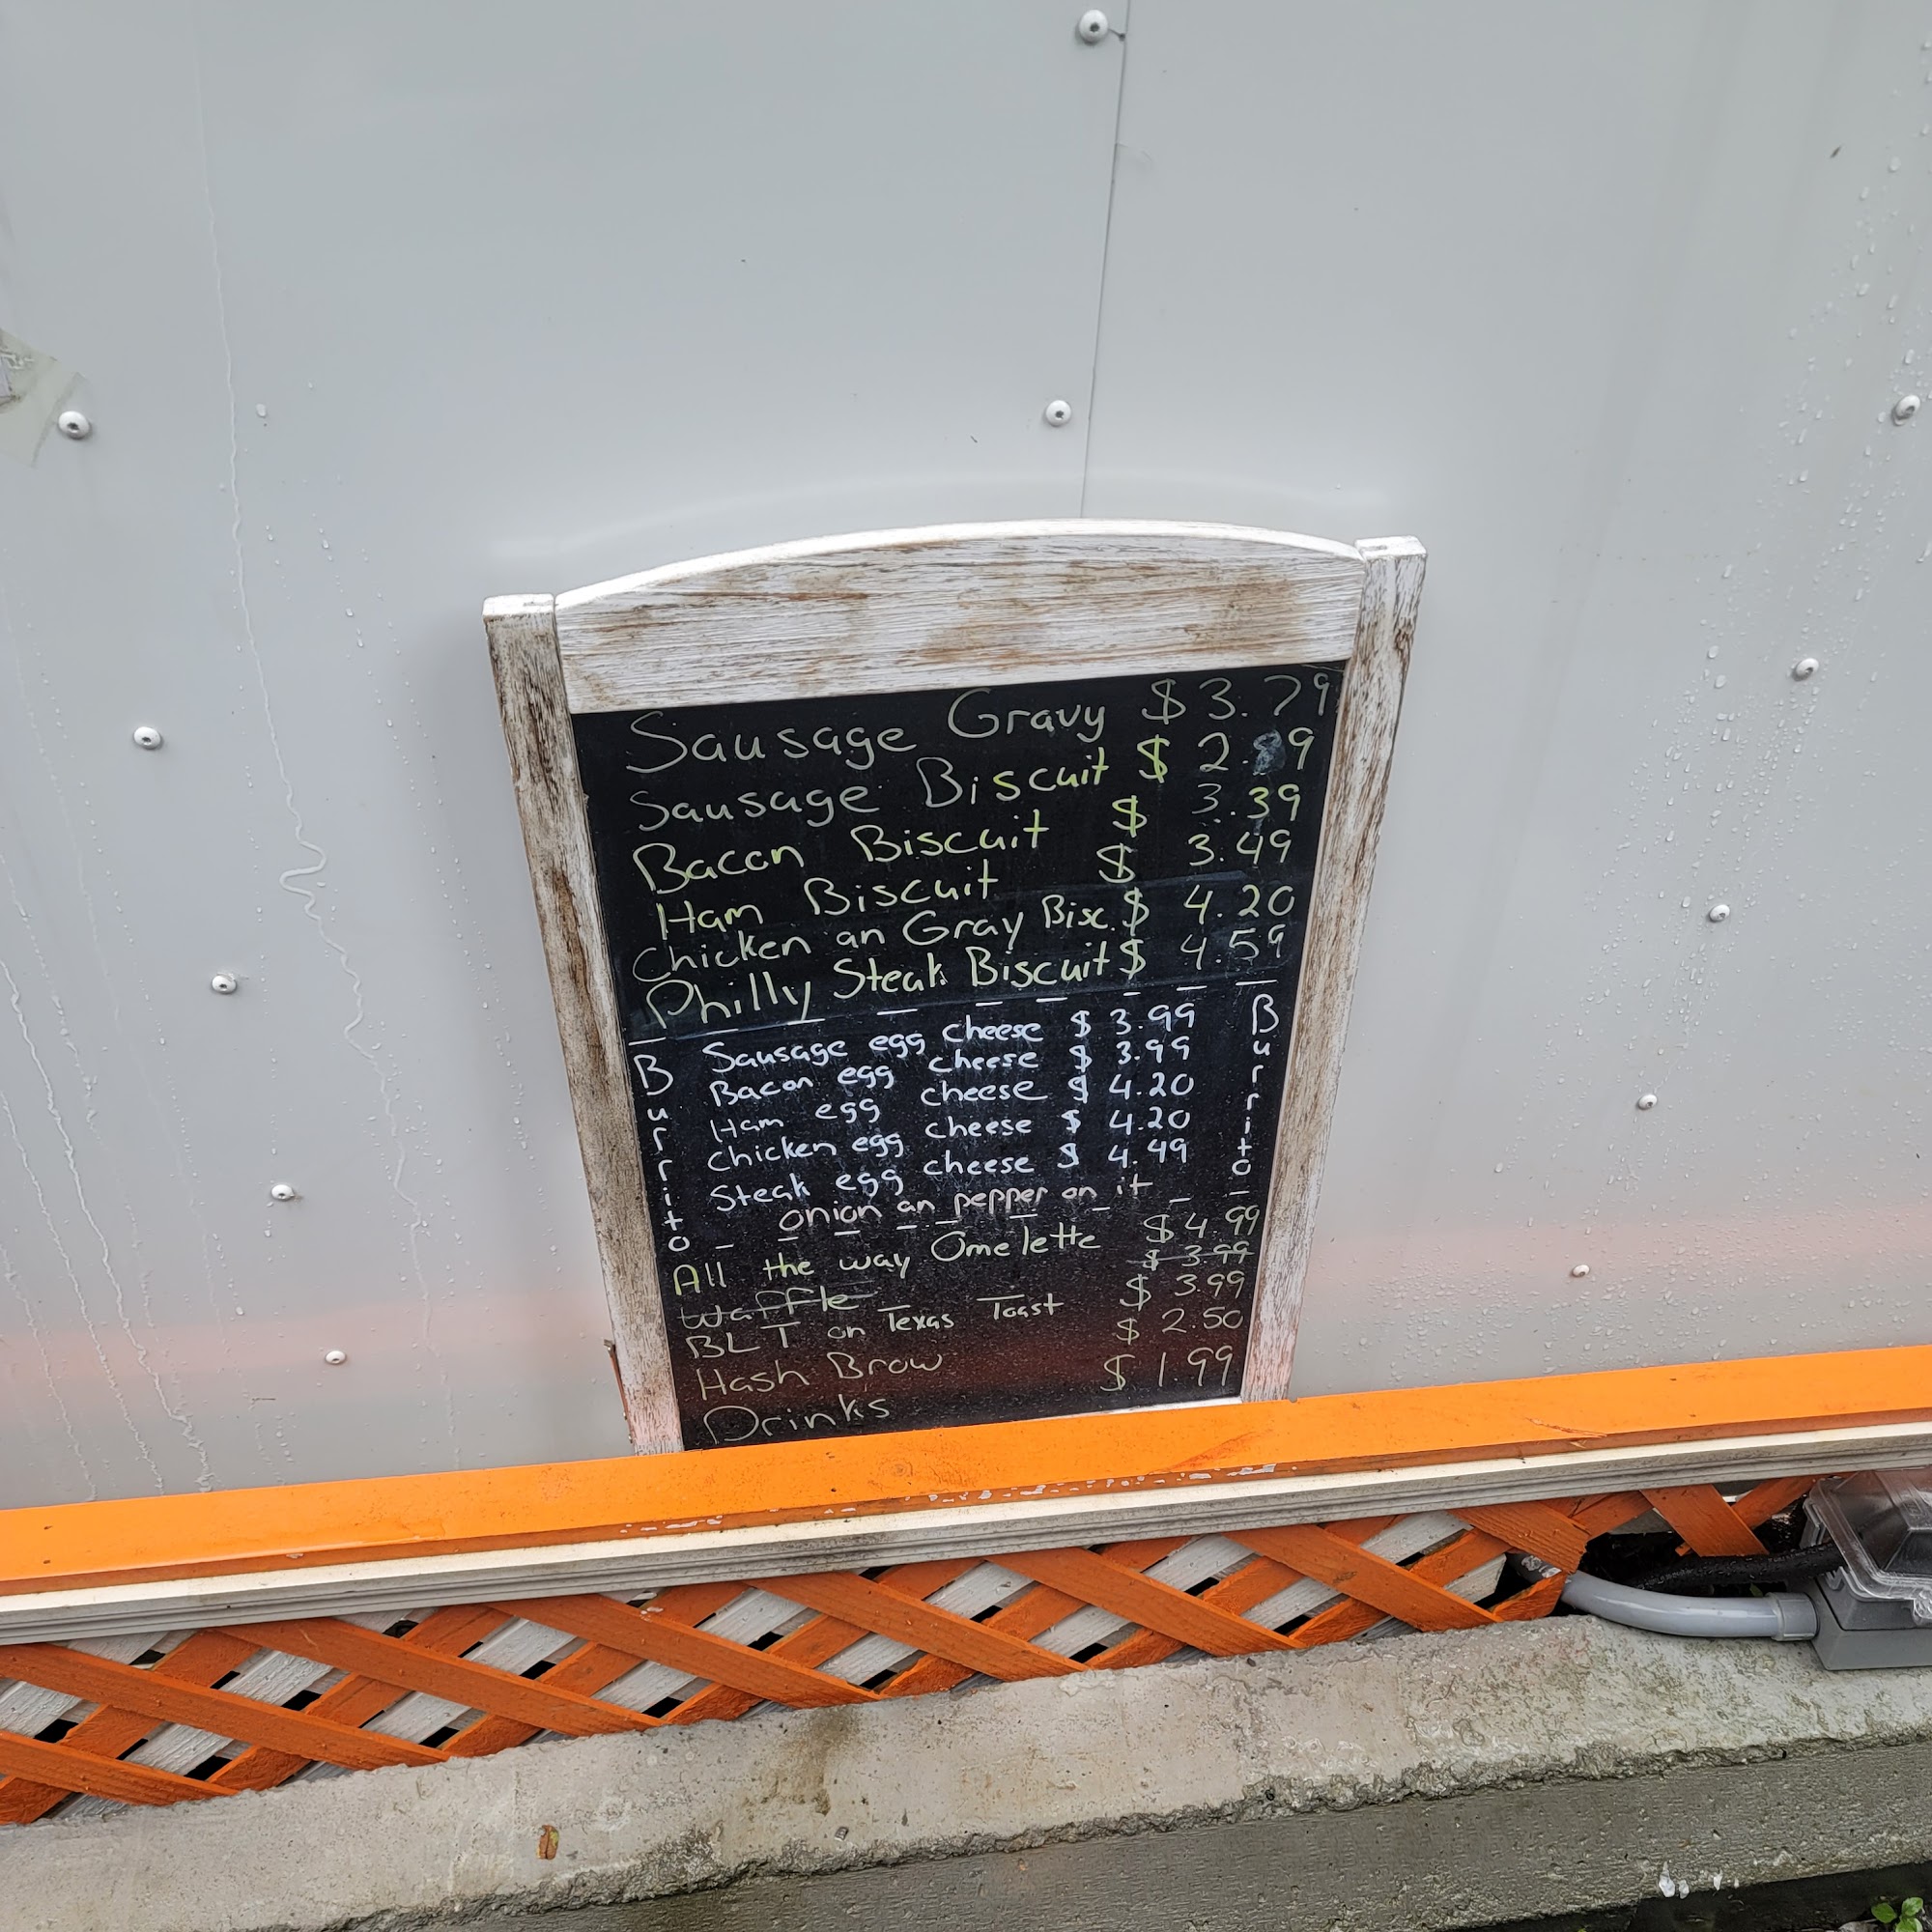 Sausage Gravy $3.79
Sausage Biscuit $2.89
Bacon Biscuit $ 3.39
Ham Biscuit $ 3.49
Chicken an Gray Bisc. $ 4.20
Philly Steak Biscuit $ 4.59
Burrito
Sausage egg cheese $ 3.99
Bacon egg cheese $ 3.99
Ham egg cheese $ 4.20
Chicken egg cheese $ 4.20
Steak egg cheese $ 4.49
onion an pepper on it
Burrito
All the way Omelette $4.99
Waffle $ 3.99
BLT on Texas Toast $ 3.99
Hash Brow $ 2.50
Drinks $ 1.99